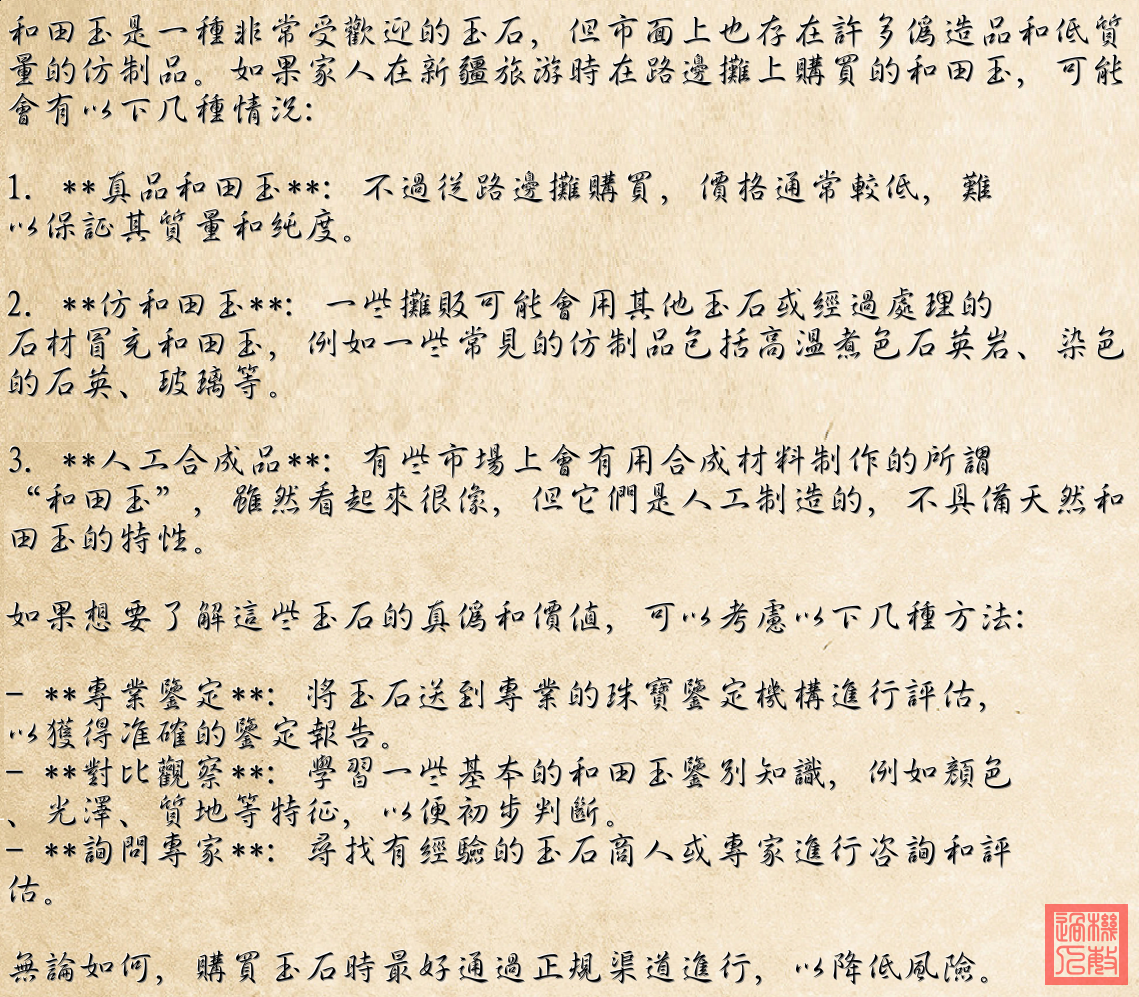 和田玉是一種非常受歡迎的玉石，但市面上也存在許多僞造品和低質
量的仿制品。如果家人在新疆旅游時在路邊攤上購買的和田玉，可能
會有以下几種情況：
1. **真品和田玉**：不過從路邊攤購買，價格通常較低，難
以保証其質量和純度。
2. **仿和田玉**：一些攤販可能會用其他玉石或經過處理的
石材冒充和田玉，例如一些常見的仿制品包括高溫煮色石英岩、染色
的石英、玻璃等。
3. **人工合成品**：有些市場上會有用合成材料制作的所謂
“和田玉”，雖然看起來很像，但它們是人工制造的，不具備天然和
田玉的特性。
如果想要了解這些玉石的真僞和價值，可以考慮以下几種方法：
- **專業鑒定**：將玉石送到專業的珠寶鑒定機構進行評估，
以獲得准確的鑒定報告。
- **對比觀察**：學習一些基本的和田玉鑒別知識，例如顏色
、光澤、質地等特征，以便初步判斷。
- **詢問專家**：尋找有經驗的玉石商人或專家進行咨詢和評
估。
無論如何，購買玉石時最好通過正規渠道進行，以降低風險。